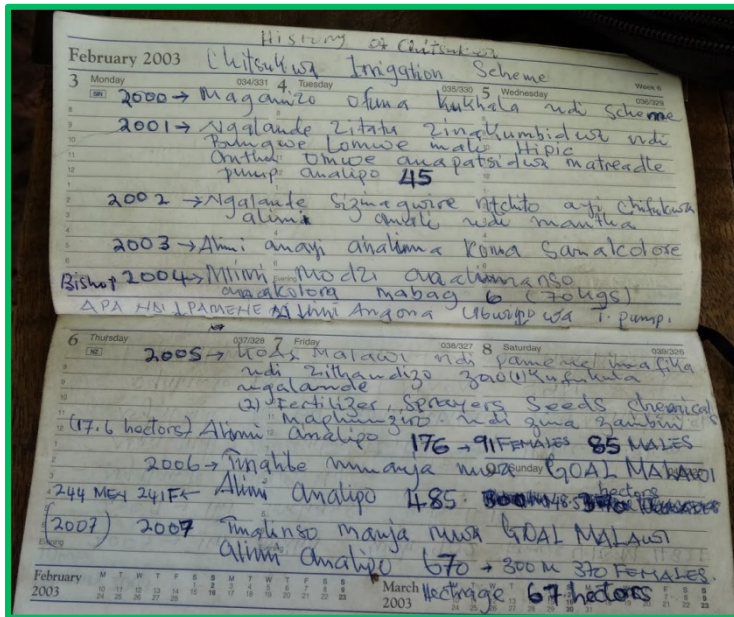 History of Chitsukwa
February 2003 Chitsukwa Irrigation Scheme
3 Monday 034/331 4 Tuesday 035/330 5 Wednesday Week 6 036/329
2000 → Maganizo ofuna kukhala ndi scheme
2001 → Ngalande zitatu zinakumbidwa ndi
Bungwe Lomwe mali Hipic
Anthu Omwe anapatsidwa matreadle
pump analipo 45
2002 → Ngalande sizinagwire ntchito ayi chifukwa
alimi anali ndi mantha
2003 → Alimi anayi analima koma samakolore
Bishop 2004 → Mlimi modzi anaalimanso
anakolora mabag 6 (70kgs)
APA NDI IPAMENE Alimi Angona Ubwino wa T. pump.
6 Thursday 037/328 7 Friday 038/327 8 Saturday 039/326
2005 → Malawi ndi pamene imafika
ndi zithandizo (1) Kufukula
ngalande
(2) Fertilizer, Sprayers Seeds chemicals
maphunziro ndi zina zambiri
(17.6 hectors) Alimi analipo 176 → 91 FEMALES 85 MALES
2006 → mmanja mwa Sunday GOAL MALAWI
244 MEN 241 F ← Alimi analipo 485 48.5 hectors
(2007) 2007 manja mwa GOAL MALAWI
alimi analipo 670 → 300 M 370 FEMALES.
February 2003 M T W T F S S March 2003 Hectrage 67 hectors